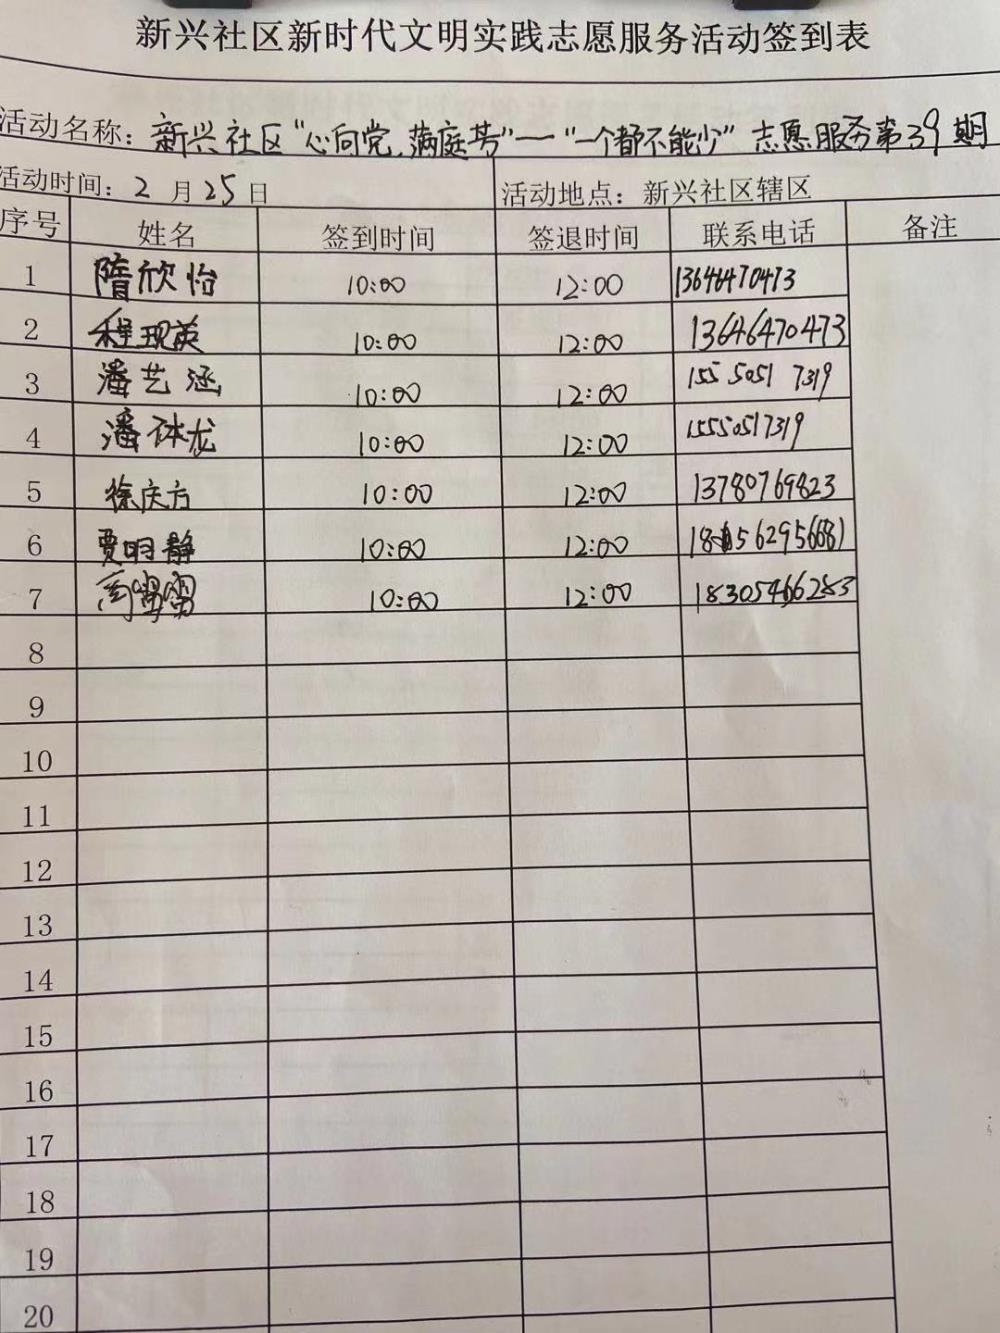 新兴社区新时代文明实践志愿服务活动签到表
活动名称：新兴社区“心向党、满庭芳”—“一个都不能少”志愿服务第39期
活动时间：2月25日 活动地点：新兴社区辖区
序号 姓名 签到时间 签退时间 联系电话 备注
1 隋欣怡 10:00 12:00 13646470473
2 程现英 10:00 12:00 13646470473
3 潘艺涵 10:00 12:00 155 5051 7319
4 潘 龙 10:00 12:00 15550517319
5 徐庆方 10:00 12:00 13780769823
6 贾明静 10:00 12:00
7 10:00 12:00 18305466283
8
9
10
11
12
13
14
15
16
17
18
19
20